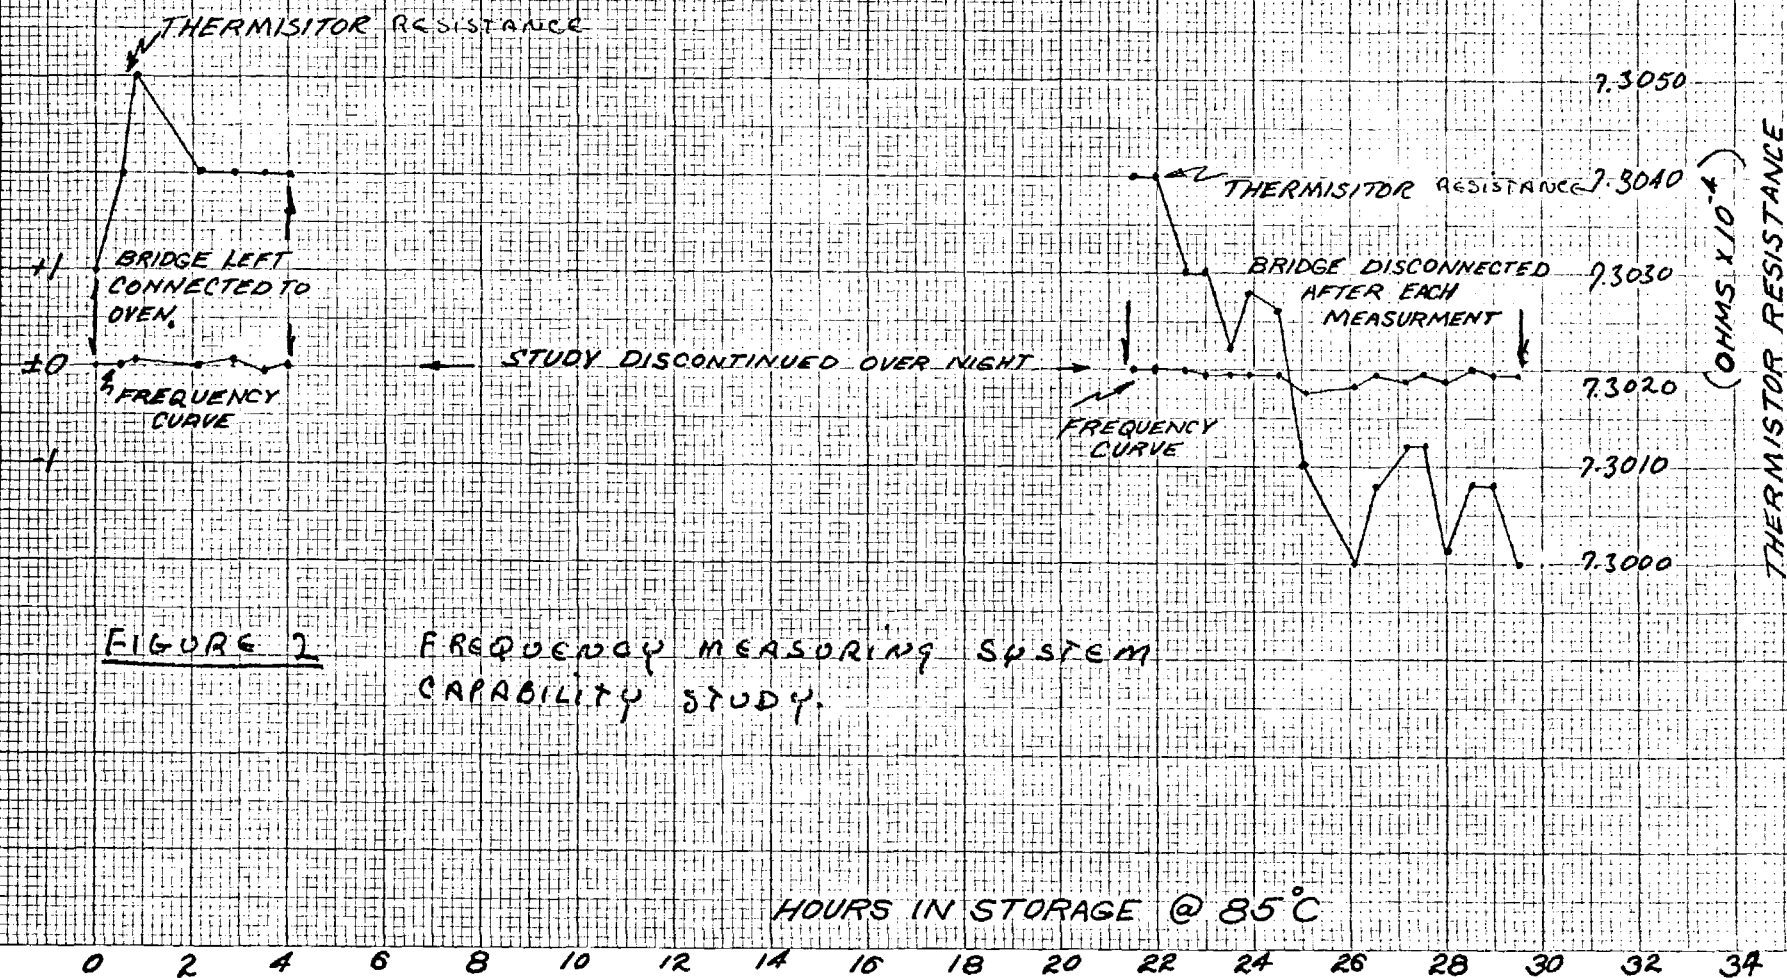 THERMISITOR RESISTANCE
7.3050
THERMISITOR RESISTANCE
7.3040
+1
BRIDGE LEFT
CONNECTED TO
OVEN.
BRIDGE DISCONNECTED
AFTER EACH
MEASURMENT
7.3030
±0
STUDY DISCONTINUED OVER NIGHT
7.3020
FREQUENCY
CURVE
FREQUENCY
CURVE
-1
7.3010
7.3000
(OHMS X 10⁻⁴)
THERMISTOR RESISTANCE
FIGURE 2
FREQUENCY MEASURING SYSTEM
CAPABILITY STUDY.
HOURS IN STORAGE @ 85°C
0 2 4 6 8 10 12 14 16 18 20 22 24 26 28 30 32 34